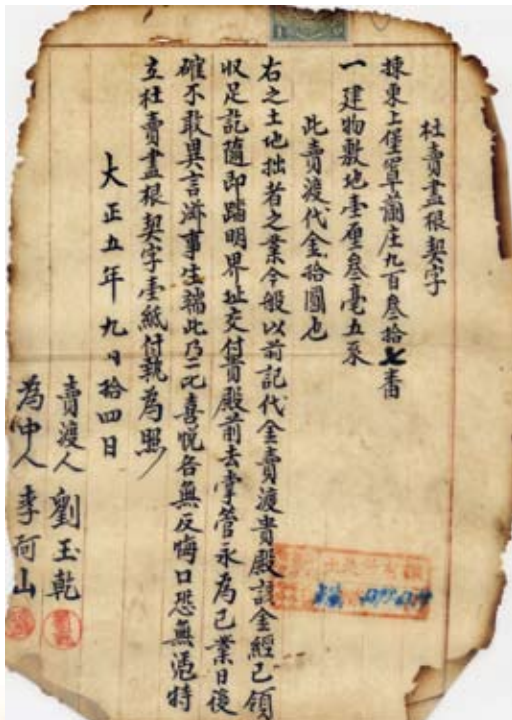 杜賣盡根契字
揀東上堡罩蘭庄九百叁拾七番
一建物敷地壹厘叁毫五糸
此賣渡代金拾圓也
右之土地拙者之業今般以前記代金賣渡貴殿該金經已領
收足訖隨即踏明界址交付貴殿前去掌管永為己業日後
確不敢異言滋事生端此乃二比喜悅各無反悔口恐無憑特
立杜賣盡根契字壹紙付執為照
大正五年九月拾四日
賣渡人劉玉乾
為中人李阿山